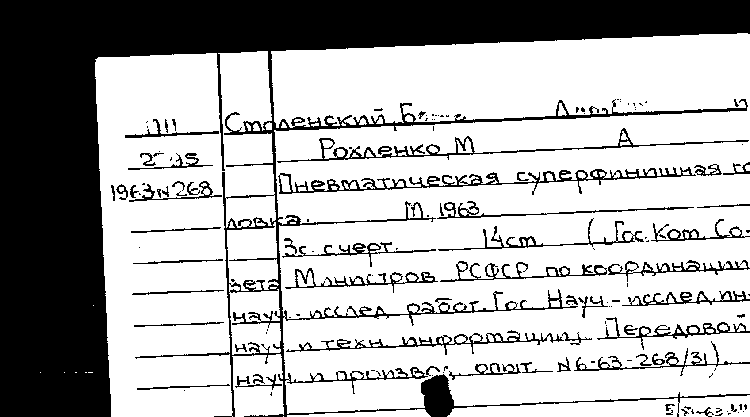 Смоленский,
Рохленко, М А
1963 N268 Пневматическая суперфинишная го-
ловка. М., 1963.
3с. с черт. 14см (Гос. Ком. Со-
вета Министров РСФСР по координации
науч.-исслед. работ. Гос. Науч.-исслед. ин-
науч. и техн. информации. Передовой
науч. и произвол. опыт. N6-63-268/31).